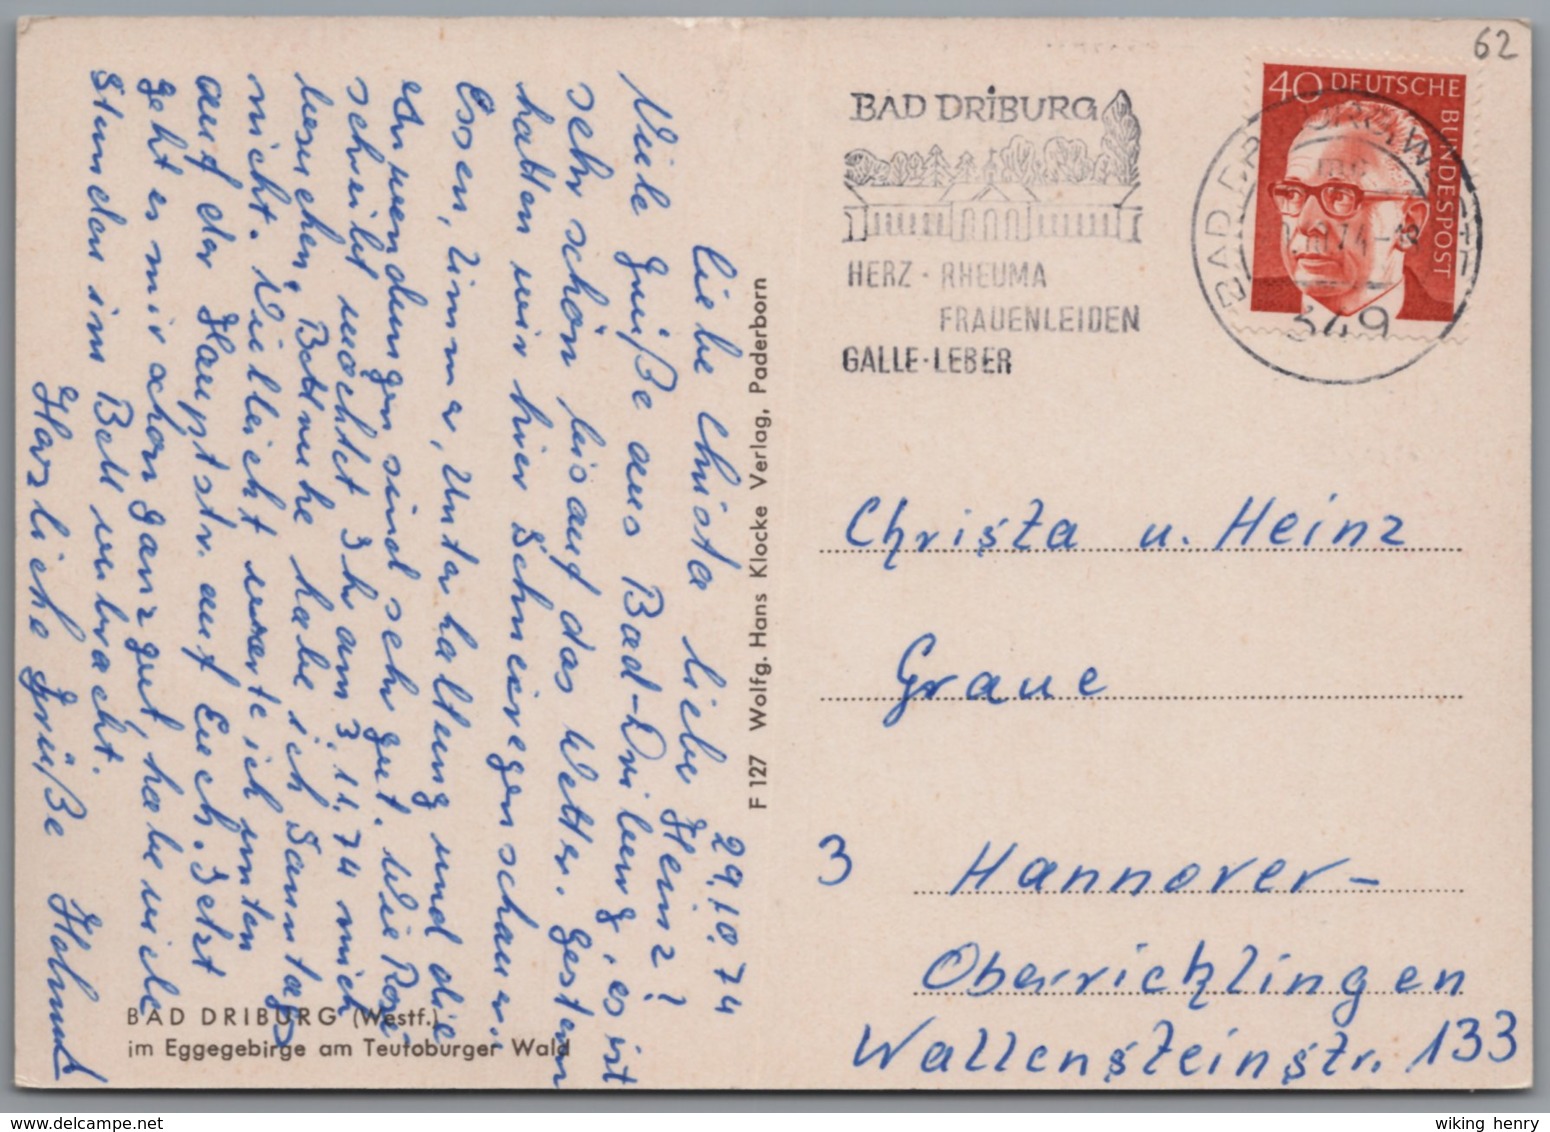 62
BAD DRIBURG
HERZ · RHEUMA
FRAUENLEIDEN
GALLE · LEBER
40 DEUTSCHE
BUNDESPOST
349
29.10.74
Liebe Christa lieber Heinz!
Viele Grüße aus Bad-Driburg, es ist
sehr schön bis auf das Wetter. Gestern
hatten wir hier Schneeregenschauer.
Essen, Zimmer, Unterhaltung und die
Anwendungen sind sehr gut. Wie Rosi
schreibt möchtet Ihr am 3.11.74 mich
besuchen, Bettruhe habe ich Samstags
nicht. Vielleicht warte ich unten
auf der Hauptstr. auf Euch. Jetzt
geht es mir schon ganz gut, habe viele
Stunden im Bett verbracht.
Herzliche Grüße Helmut
F 127 Wolfg. Hans Klocke Verlag, Paderborn
Christa u. Heinz
Graue
3 Hannover-
Oberricklingen
Wallensteinstr. 133
BAD DRIBURG (Westf.)
im Eggegebirge am Teutoburger Wald
wiking henry